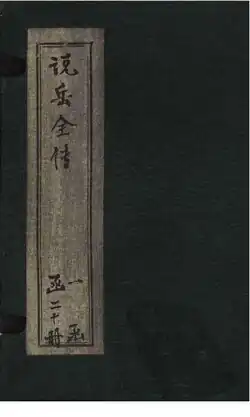 说岳全传
一函
二十册